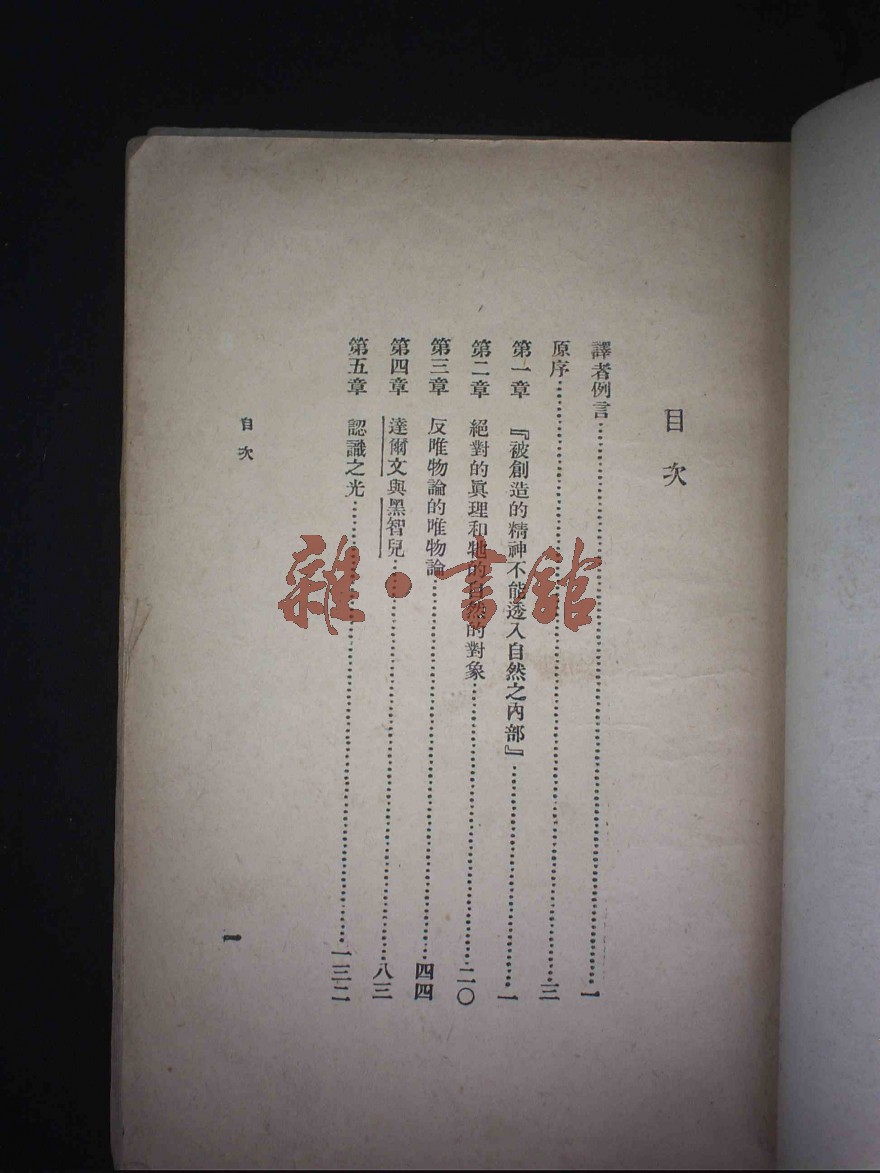 目次
譯者例言……一
原序……三
第一章 『被創造的精神不能透入自然之內部』……一
第二章 絕對的眞理和牠的自然的對象……二〇
第三章 反唯物論的唯物論……四四
第四章 達爾文與黑智兒……八三
第五章 認識之光……一三二
目次
一
雜·書館